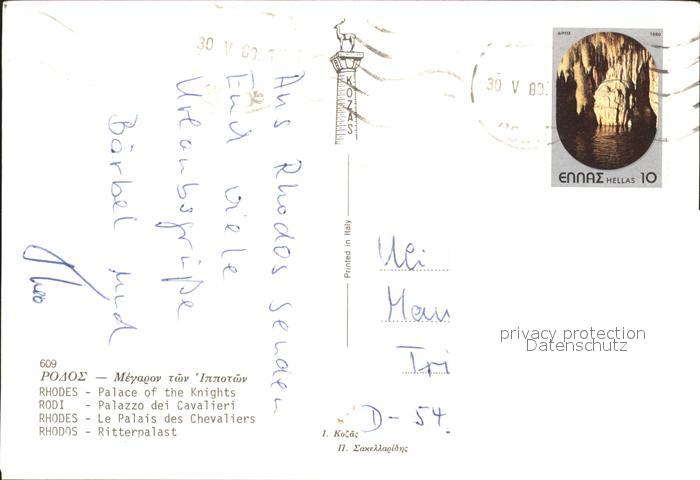 30 V 80
KOZAS
30 V 80
ΔΙΡΟΣ 1980
ΕΛΛΑΣ HELLAS 10
Aus Rhodos senden
Euch viele
Urlaubsgrüße
Bärbel und
Printed in Italy
Uli
Mau
Tri
D-54
privacy protection
Datenschutz
609
ΡΟΔΟΣ — Μέγαρον τῶν Ἱπποτῶν
RHODES - Palace of the Knights
RODI - Palazzo dei Cavalieri
RHODES - Le Palais des Chevaliers
RHODOS - Ritterpalast
Ι. Κοζᾶς
Π. Σακελλαρίδης